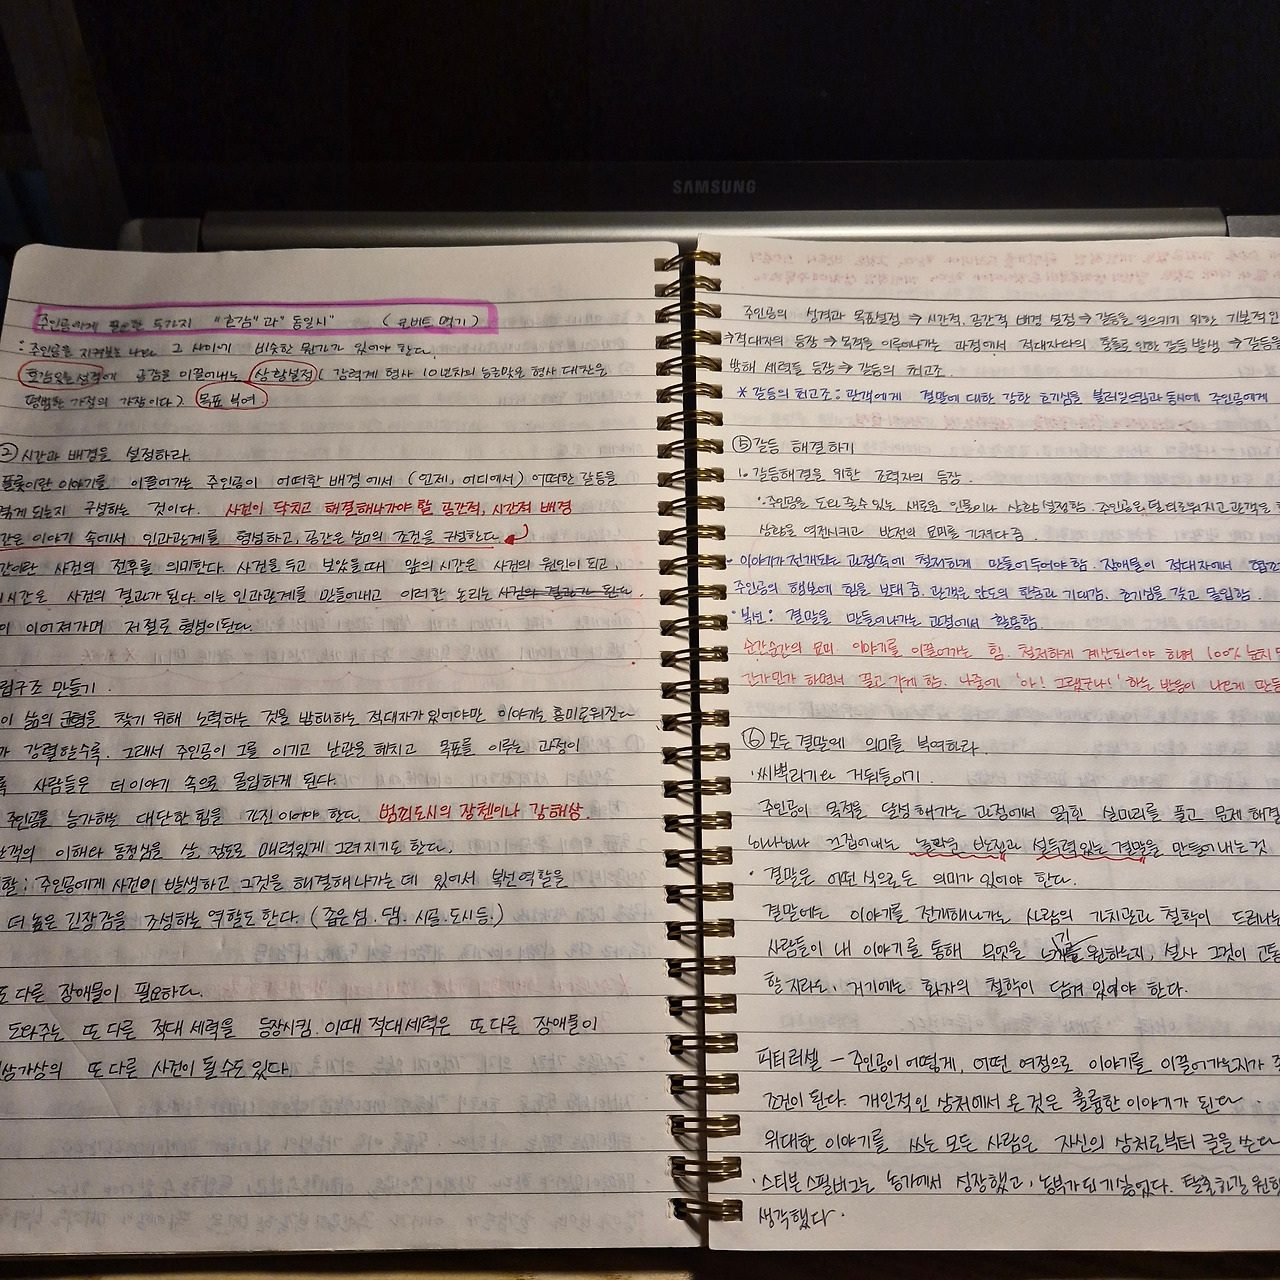 SAMSUNG
주인공에게 필요한 두가지 "호감"과 "동일시" (큐비트 먹기)
: 주인공을 지켜보는 나와 그 사이에 비슷한 뭔가가 있어야 한다.
호감있는 성격에 공감을 이끌어내는 상황설정 ( 강력계 형사 10년차의 능글맞은 형사 대찬은
평범한 가정의 가장이다) 목표 부여.
② 시간과 배경을 설정하라.
플롯이란 이야기를 이끌어가는 주인공이 어떠한 배경에서 (언제, 어디에서) 어떠한 갈등을
겪게 되는지 구성하는 것이다. 사건이 닥치고 해결해나가야 할 공간적, 시간적 배경
간은 이야기 속에서 인과관계를 형성하고, 공간은 삶의 조건을 구성한다.
간이란 사건의 전후를 의미한다. 사건을 두고 보았을때 앞의 시간은 사건의 원인이 되고,
시간은 사건의 결과가 된다. 이는 인과관계를 만들어내고 이러한 논리는 사건의 결과가 된다.
이 이어져가며 저절로 형성이된다.
립구조 만들기.
이 삶의 균형을 찾기 위해 노력하는 것을 방해하는 적대자가 있어야만 이야기는 흥미로워진다
가 강렬할수록. 그래서 주인공이 그를 이기고 난관을 헤치고 목표를 이루는 과정이
록 사람들은 더 이야기 속으로 몰입하게 된다.
주인공을 능가하는 대단한 힘을 가진 이어야 한다. 범죄도시의 장첸이나 강해상
관객의 이해와 동정심을 살 정도로 매력있게 그려지기도 한다.
함 : 주인공에게 사건이 발생하고 그것을 해결해 나가는 데 있어서 복선 역할을
더 높은 긴장감을 조성하는 역할도 한다. (좁은 섬. 댐. 시골. 도시 등.)
또 다른 장애물이 필요하다.
도와주는 또 다른 적대 세력을 등장시킴. 이때 적대세력은 또 다른 장애물이
상가상의 또 다른 사건이 될 수도 있다.
주인공의 성격과 목표설정 ⇒ 시간적, 공간적 배경 설정 ⇒ 갈등을 일으키기 위한 기본적인
⇒ 적대자의 등장 ⇒ 목적을 이루어나가는 과정에서 적대자와의 충돌로 인한 갈등 발생 ⇒ 갈등을
방해 세력들 등장 ⇒ 갈등의 최고조.
* 갈등의 최고조 : 관객에게 결말에 대한 강한 호기심을 불러일으킴과 동시에 주인공에게
⑤ 갈등 해결하기
1. 갈등해결을 위한 조력자의 등장.
· 주인공을 도와 줄 수 있는 새로운 인물이나 상황 설정함. 주인공은 더 관객을
상황을 역전시키고 반전의 묘미를 가져다 줌.
· 이야기가 전개되는 과정속에 철저하게 만들어 두어야 함. 장애물이 적대자에서
주인공의 행보에 힘을 보태 줌. 관객은 안도의 한숨과 기대감. 호기심을 갖고 몰입함
· 복선 : 결말을 만들어나가는 과정에서 활용함.
순간순간의 묘미. 이야기를 이끌어가는 힘. 철저하게 계산되어야 하며 100% 눈치
긴가민가 하면서 끌고 가게 함. 나중에 '아! 그랬구나!' 하는 반응이 나오게
⑥ 모든 결말에 의미를 부여하라.
· 씨뿌리기와 거둬들이기.
주인공이 목적을 달성해가는 과정에서 얽힌 실마리를 풀고 문제 해결
하나하나 끄집어내는 놀라운 반전과 설득력 있는 결말을 만들어 내는 것
· 결말은 어떤 식으로든 의미가 있어야 한다.
결말에는 이야기를 전개해나가는 사람의 가치관과 철학이 드러나는
사람들이 내 이야기를 통해 무엇을 원하는지, 설사 그것이 고통
할 지라도, 거기에는 화자의 철학이 담겨 있어야 한다.
피터 러셀 – 주인공이 어떻게, 어떤 여정으로 이야기를 이끌어가는지가
조건이 된다. 개인적인 상처에서 온 것은 훌륭한 이야기가 된다.
위대한 이야기를 쓰는 모든 사람은 자신의 상처로부터 글을 쓴다
· 스티븐 스필버그는 농가에서 성장했고, 농부가 되기 싫었다. 탈출하길 원
생각했다.